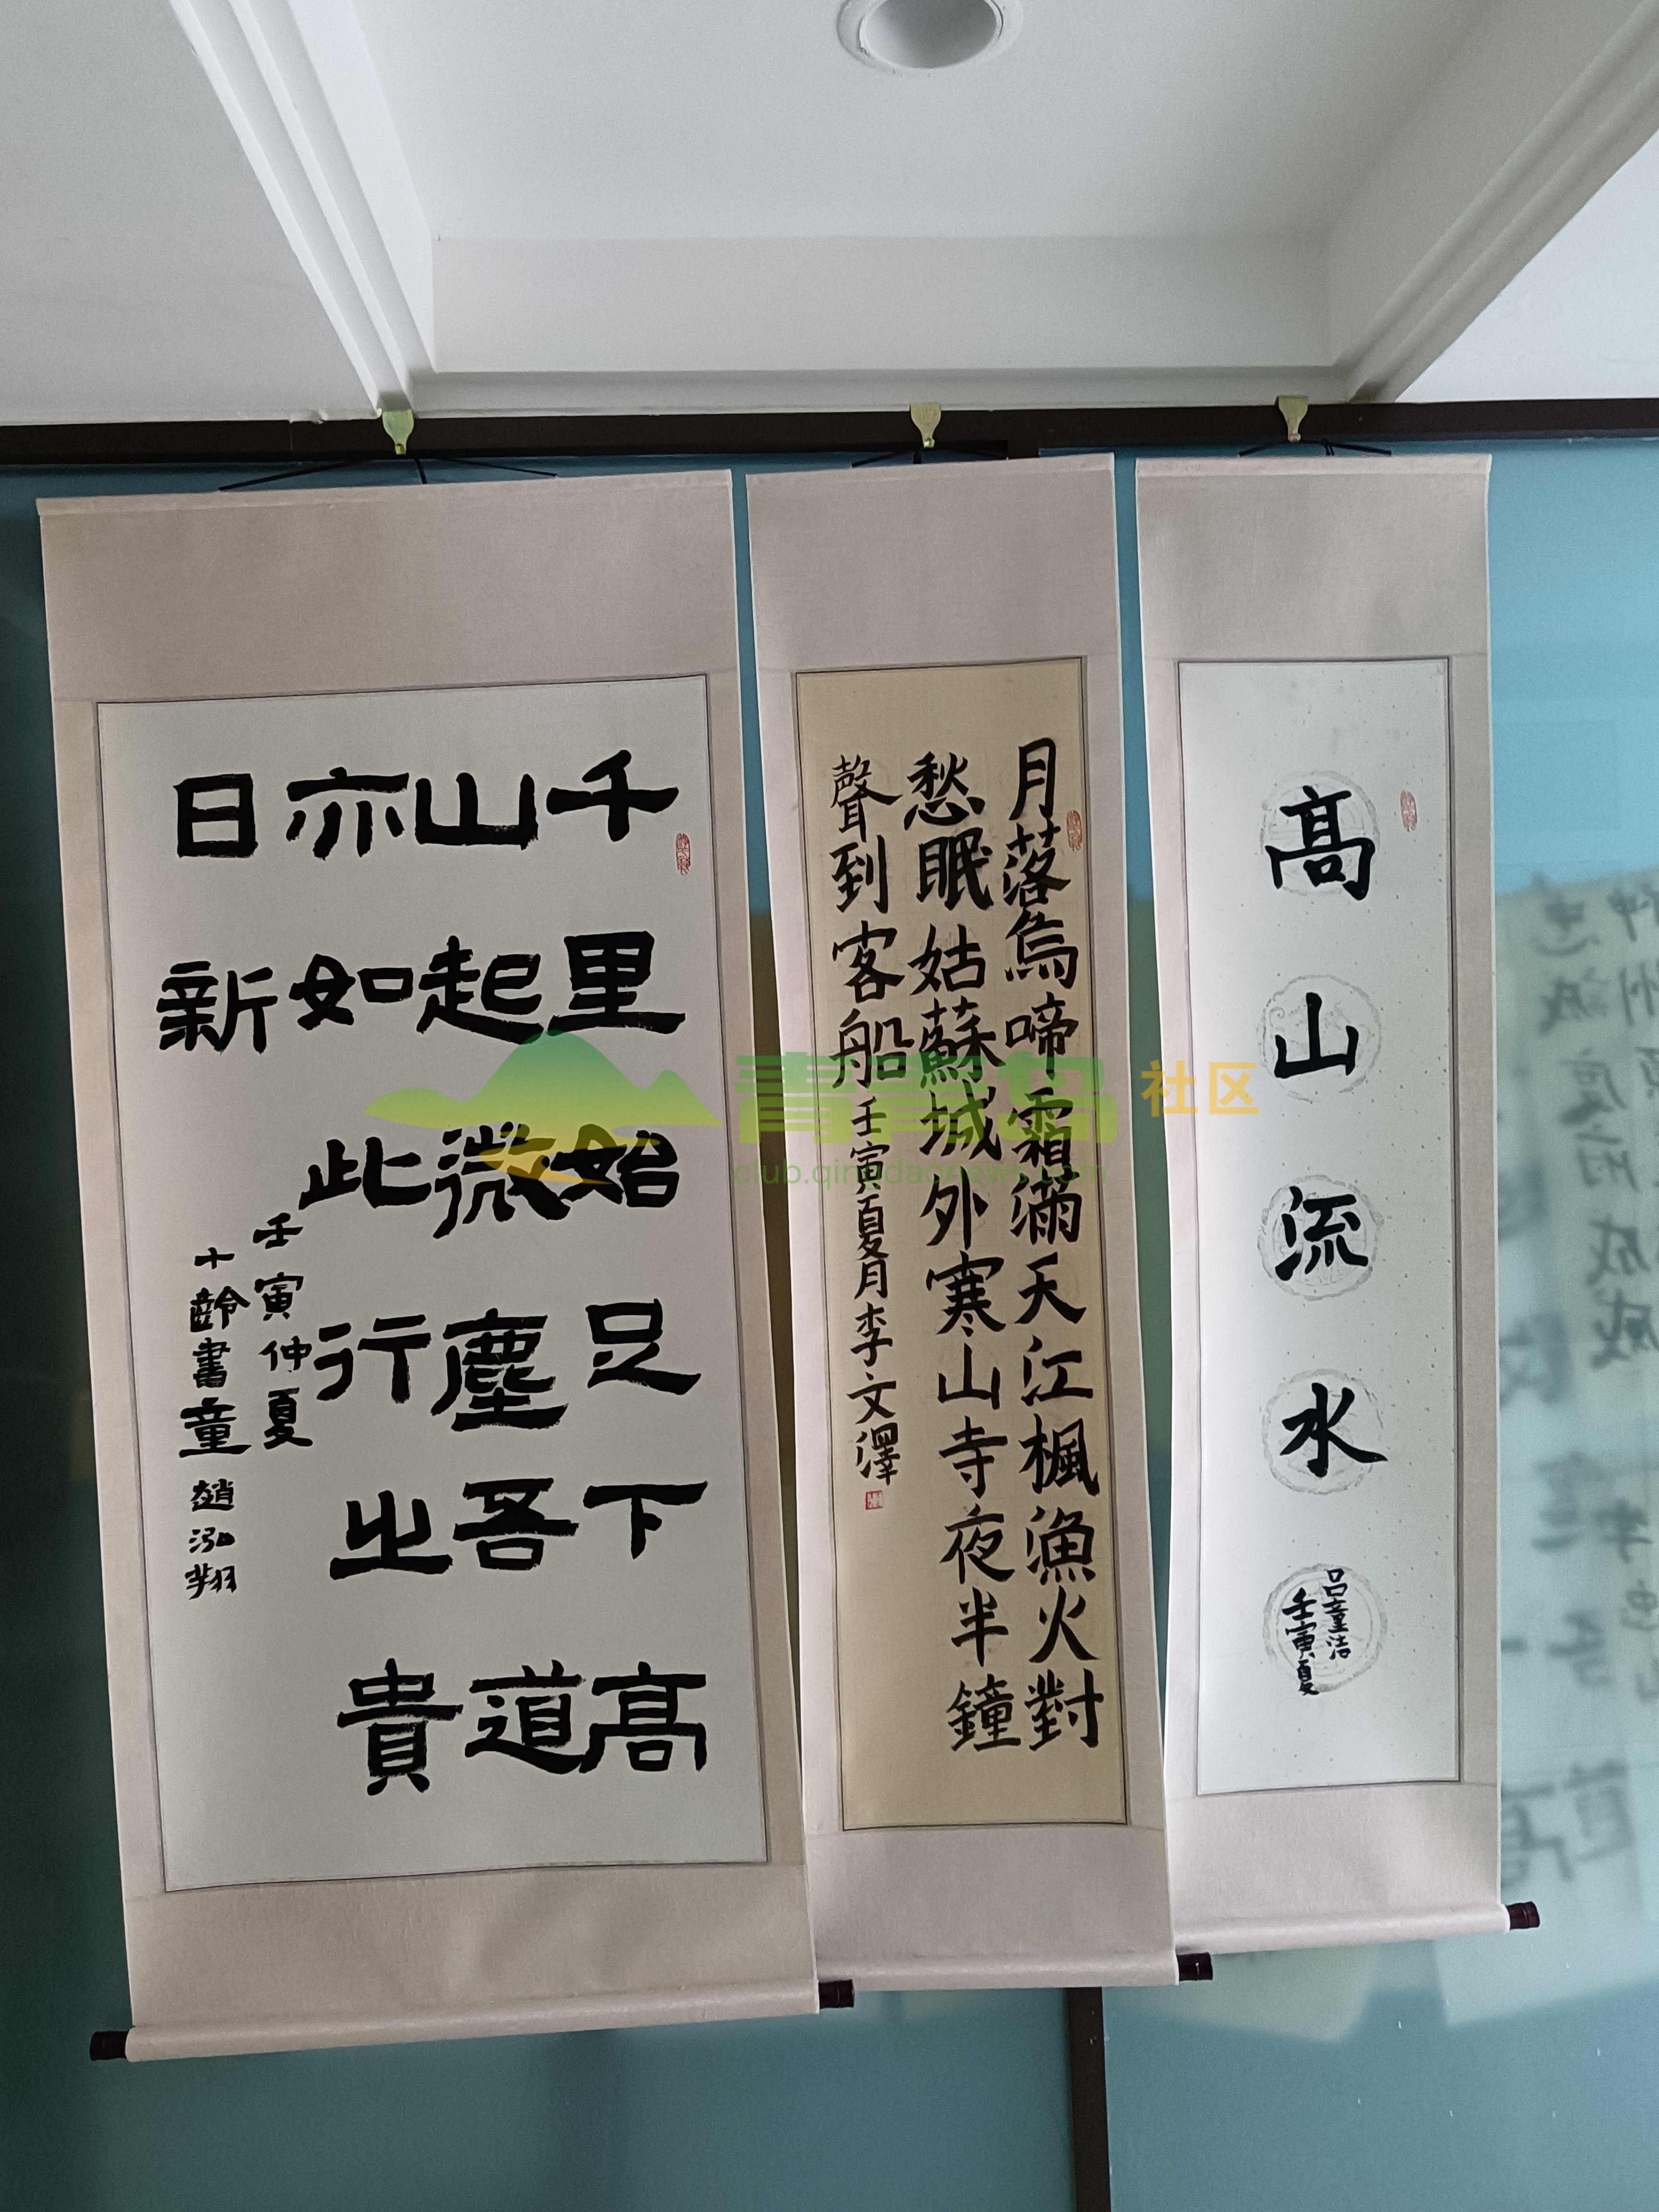 高山流水
吕童洁
壬寅夏
月落烏啼霜滿天江楓漁火對
愁眠姑蘇城外寒山寺夜半鐘
聲到客船壬寅夏月李文澤
千里始足下高
山起微塵吾道
亦如此行之貴
日新
壬寅仲夏
十齡書童趙泓翔
青青岛社区
club.qingdaonews.com